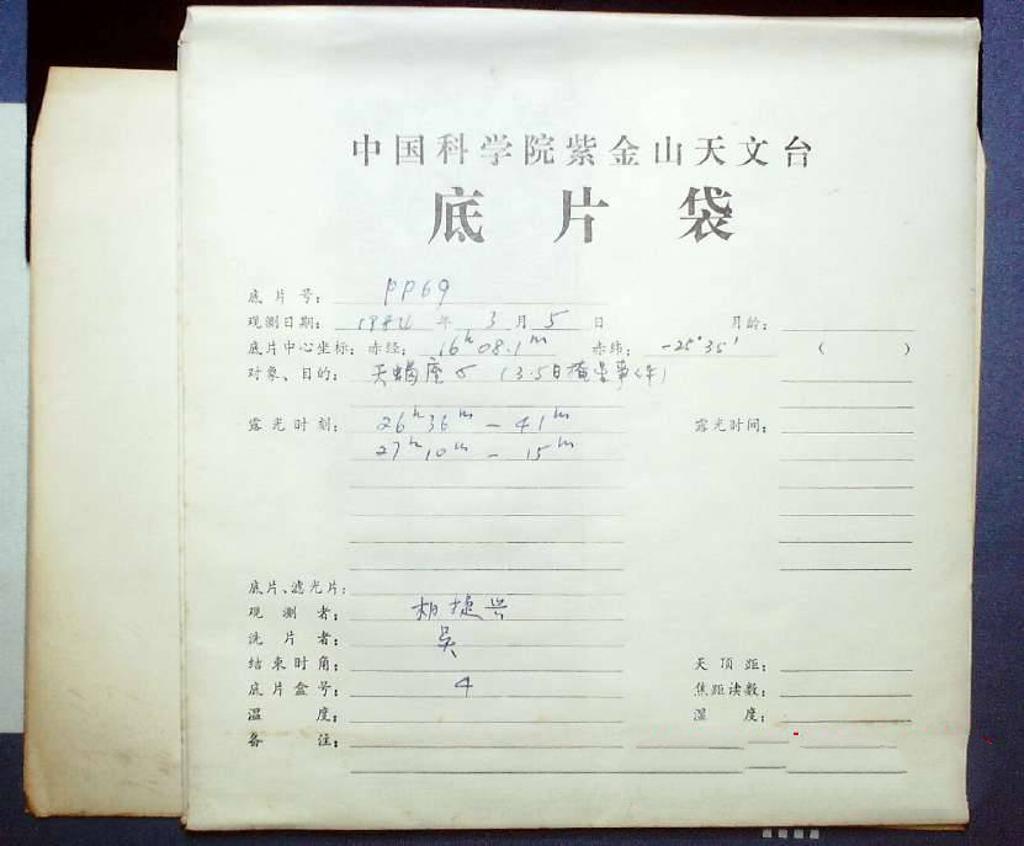 中国科学院紫金山天文台
底片袋
底片号: PP69
观测日期: 1984年3月5日 月龄:
底片中心坐标: 赤经: 16h08.1m 赤纬: -25°35' ( )
对象、目的: 天蝎座σ (3.5日掩星事件)
露光时刻: 26h36m - 41m 露光时间:
27h10m - 15m
底片、滤光片:
观测者: 胡捷兴
洗片者: 吴
结束时角: 天顶距:
底片盒号: 4 焦距读数:
温度: 湿度:
备注: